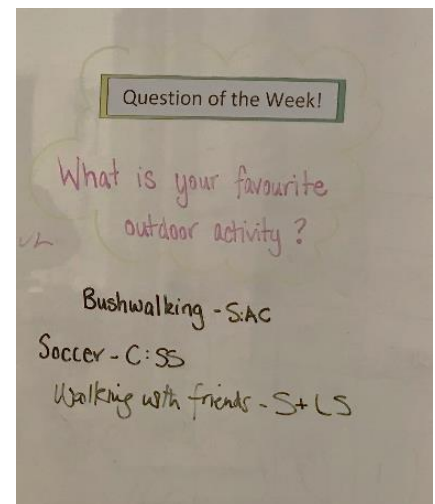 Question of the Week!
What is your favourite
outdoor activity?
Bushwalking - S:AC
Soccer - C:SS
Walking with friends - S+LS